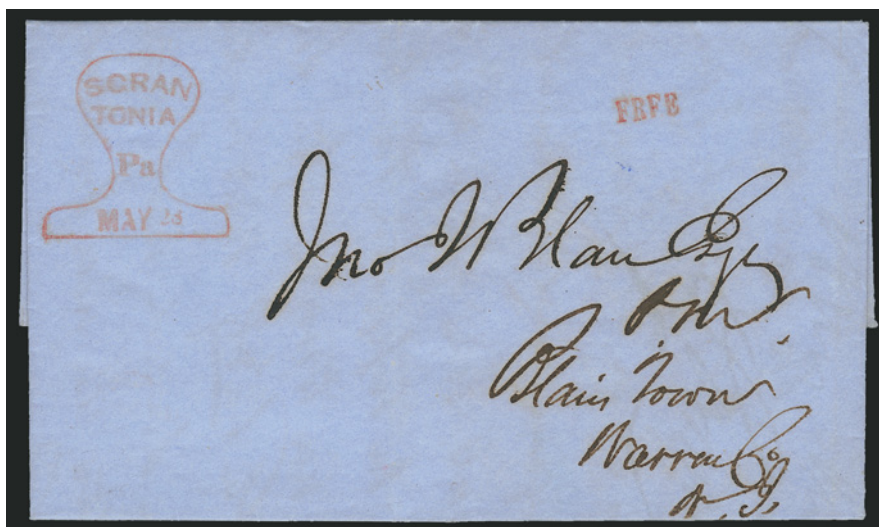 SCRAN
TONIA
Pa
MAY 23
FREE
Jno I Blair Esqr
P.M.
Blairs Town
Warren Co
N. J.